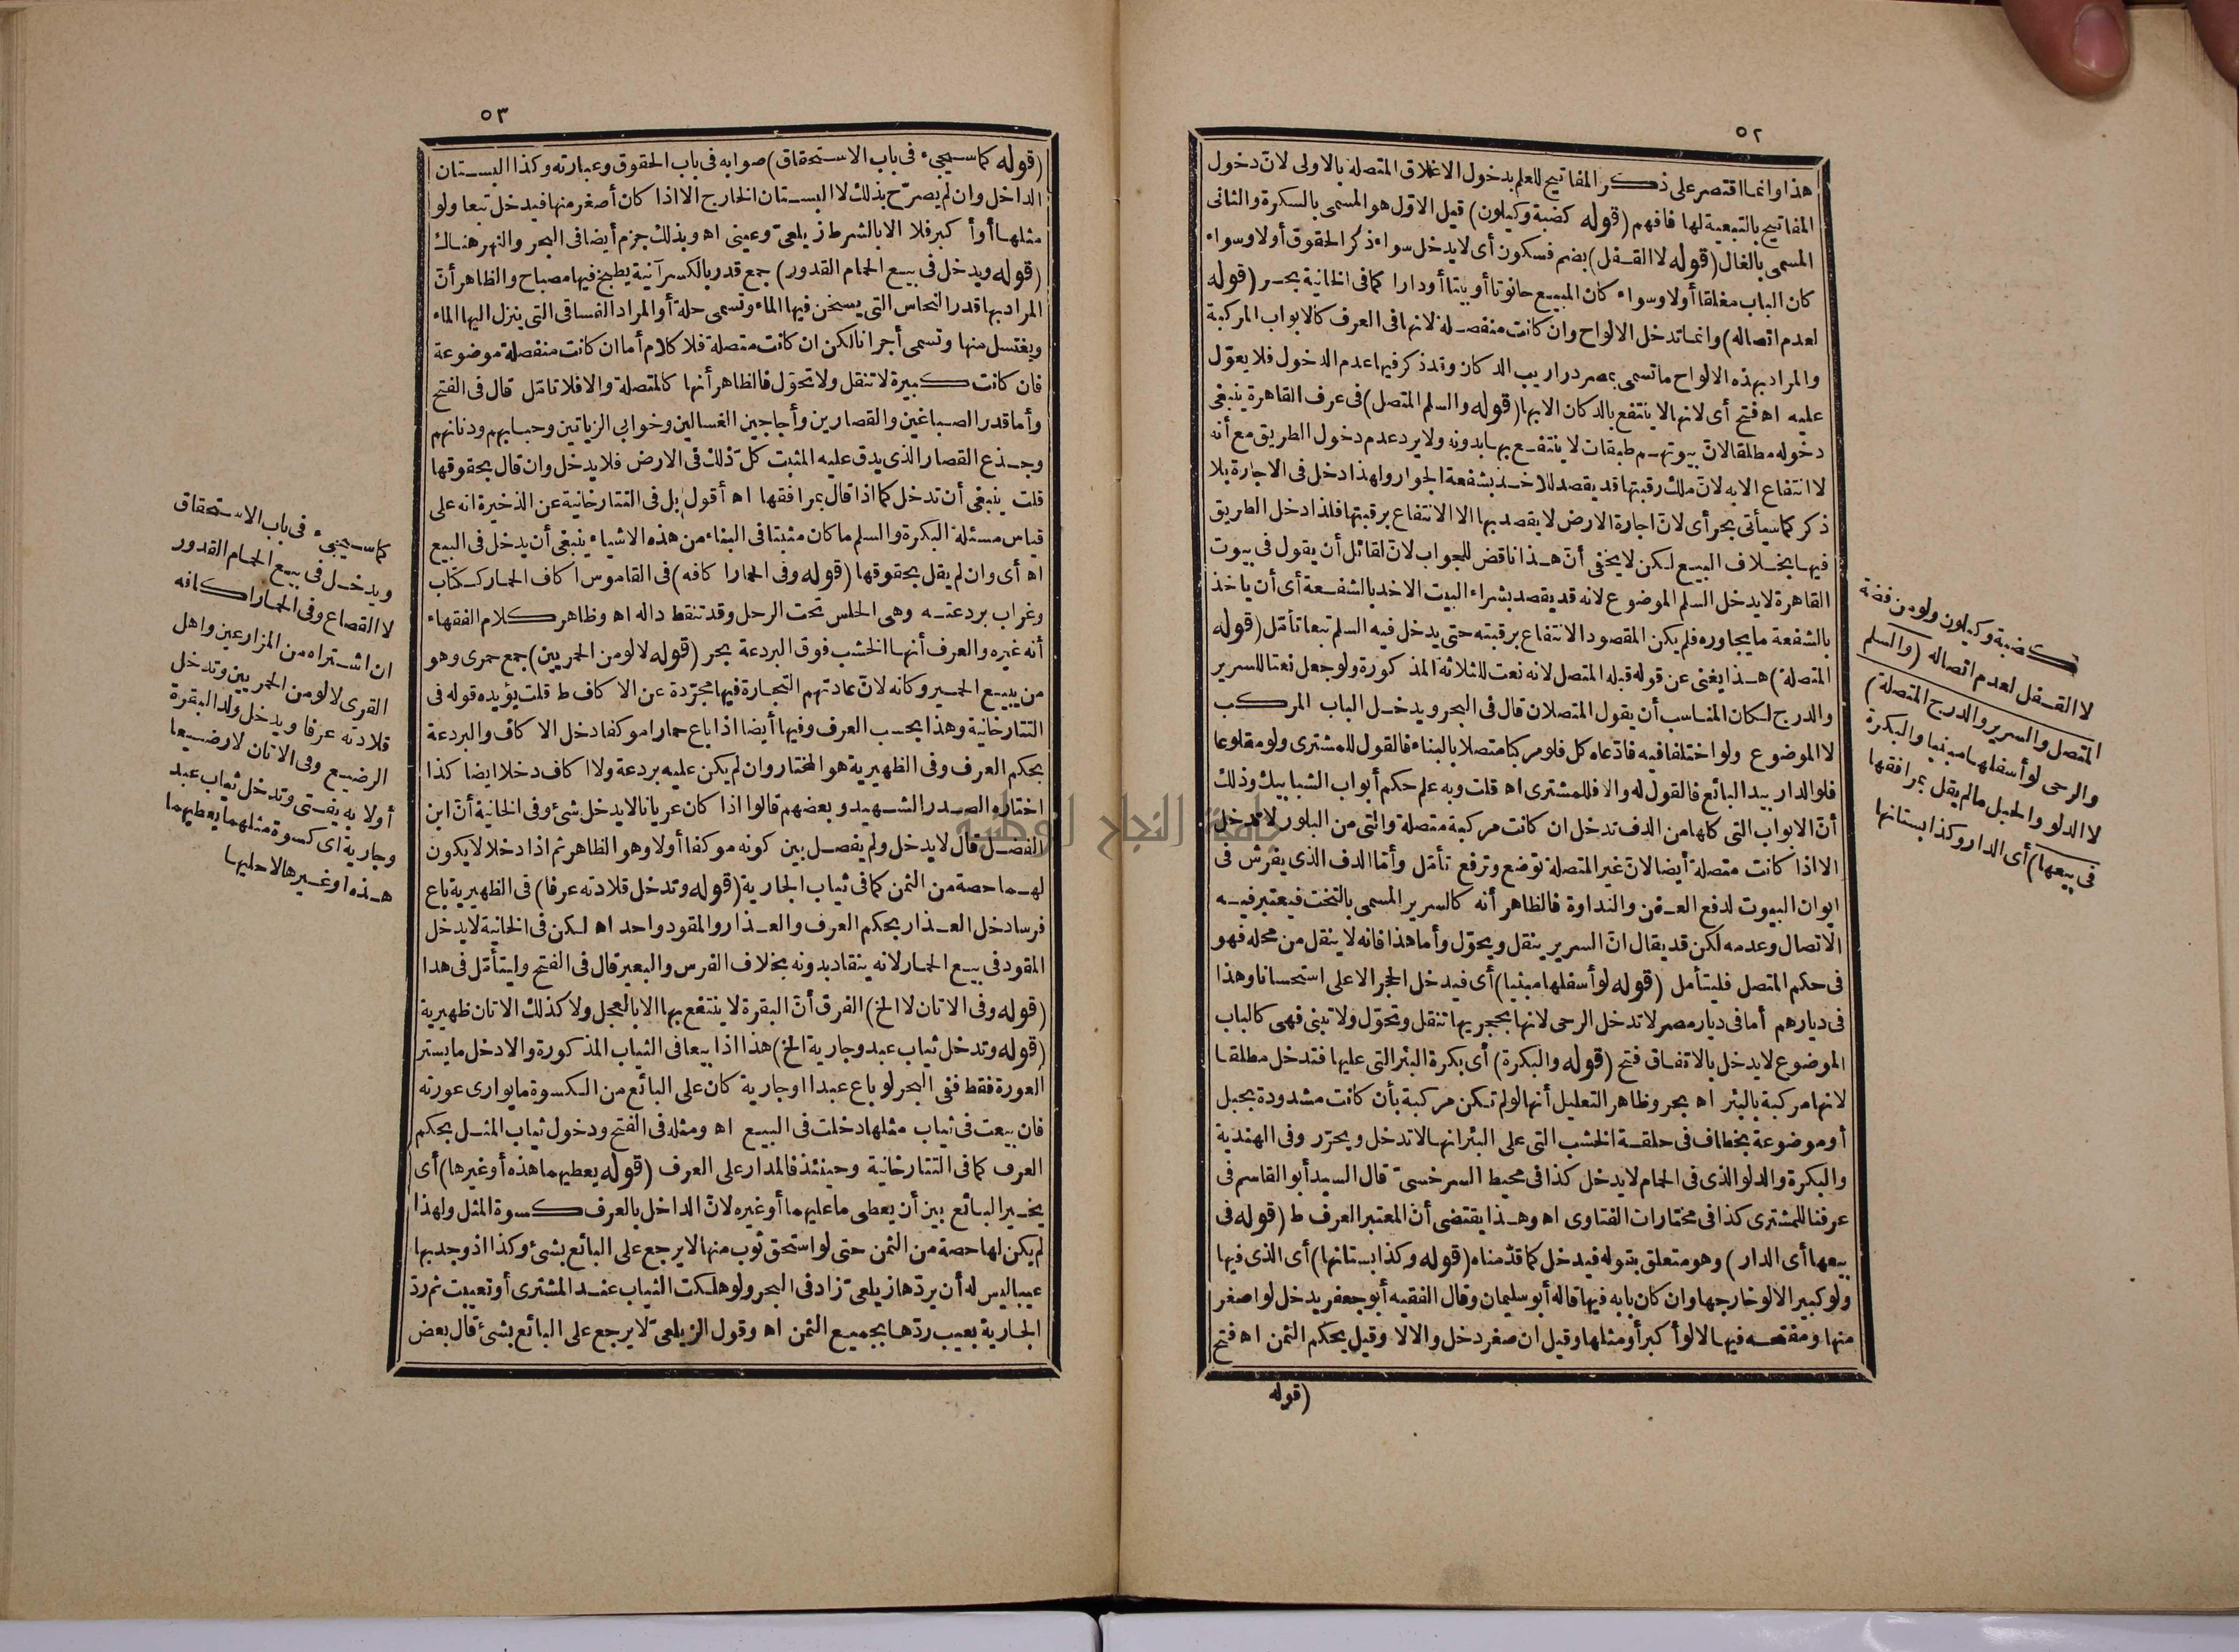 ٥٢
هذا وانما اقتصر على ذكر المفاتيح للعلم بدخول الاغلاق المتصلة بالاولى لانّ دخول
المفاتيح بالتبعية لها فافهم (قوله كضبة وكيلون) قيل الاوّل هو المسمى بالسكرة والثانى
المسمى بالغال (قوله لا القفل) بضم فسكون أى لا يدخل سواء ذكر الحقوق أولا وسواء
كان الباب مغلقا أولا وسواء كان المبيع حانوتا أو بيتا أو دارا كما فى الخانية بحر (قوله
لعدم اتصاله) وانما تدخل الالواح وان كانت منفصلة لانها فى العرف كالابواب المركبة
والمراد بهذه الالواح ما تسمى بمصر دراريب الدكان وقد ذكر فيها عدم الدخول فلا يعوّل
عليه اه فتح أى لانها لا ينتفع بالدكان الا بها (قوله والسلم المتصل) فى عرف القاهرة ينبغى
دخوله مطلقا لان بيوتهم طبقات لا ينتفع بها بدونه ولا يرد عدم دخول الطريق مع أنه
لا انتفاع الا به لانّ ملك رقبتها قد يقصد للاخذ بشفعة الجوار ولهذا دخل فى الاجارة بلا
ذكر كما سيأتى بحر أى لانّ اجارة الارض لا يقصد بها الا الانتفاع برقبتها فلذا دخل الطريق
فيها بخلاف البيع لكن لا يخفى أنّ هذا ناقض للجواب لانّ لقائل أن يقول فى بيوت
القاهرة لا يدخل السلم الموضوع لانه قد يقصد بشراء البيت الاخذ بالشفعة أى أن ياخذ
بالشفعة ما يجاوره فلم يكن المقصود الانتفاع برقبته حتى يدخل فيه السلم تبعا تأمّل (قوله
المتصلة) هذا يغنى عن قوله قبله المتصل لانه نعت للثلاثة المذكورة ولو جعل نعتا للسرير
والدرج لكان المناسب أن يقول المتصلان قال فى البحر ويدخل الباب المركب
لا الموضوع ولو اختلفا فيه فادّعاه كل فلو مركبا متصلا بالبناء فالقول للمشترى ولو مقلوعا
فلو الدار بيد البائع فالقول له والا فللمشترى اه قلت وبه علم حكم أبواب الشبابيك وذلك
أنّ الابواب التى كلها من الدف تدخل ان كانت مركبة متصلة والتى من البلور لا تدخل
الا اذا كانت متصلة أيضا لانّ غير المتصلة توضع وترفع تأمّل وأمّا الدف الذى يفرش فى
ايوان البيوت لدفع العفن والنداوة فالظاهر أنه كالسرير المسمى بالتخت فيعتبر فيه
الاتصال وعدمه لكن قد يقال انّ السرير ينقل ويحوّل وأما هذا فانه لا ينقل من محله فهو
فى حكم المتصل فليتأمل (قوله لو أسفلها مبنيا) أى فيدخل الحجر الاعلى استحسانا وهذا
فى ديارهم أما فى ديار مصر لا تدخل الرحى لانها بحجريها تنقل وتحوّل ولا تبنى فهى كالباب
الموضوع لا يدخل بالاتفاق فتح (قوله والبكرة) أى بكرة البئر التى عليها فتدخل مطلقا
لانها مركبة بالبئر اه بحر وظاهر التعليل أنها لو لم تكن مركبة بأن كانت مشدودة بحبل
أو موضوعة بخطاف فى حلقة الخشب التى على البئر انها لا تدخل ويحرّر وفى الهندية
والبكرة والدلو الذى فى الحمام لا يدخل كذا فى محيط السرخسىّ قال السيد أبو القاسم فى
عرفنا للمشترى كذا فى مختارات الفتاوى اه وهذا يقتضى أنّ المعتبر العرف ط (قوله فى
بيعها أى الدار) وهو متعلق بقوله فيدخل كما قدّمناه (قوله وكذا بستانها) أى الذى فيها
ولو كبيرا لا لو خارجها وان كان بابه فيها قاله أبو سليمان وقال الفقيه أبو جعفر يدخل لو اصغر
منها ومفتحه فيها لا لو أكبر أو مثلها وقيل ان صغر دخل والا لا وقيل يحكم الثمن اه فتح
(قوله
كضبة وكيلون ولو من فضة
لا القفل لعدم اتصاله (والسلم
المتصل والسرير والدرج المتصلة)
والرحى لو أسفلها مبنيا والبكرة
لا الدلو والحبل ما لم يقل بمرافقها
فى بيعها) أى الدار وكذا بستانها
٥٣
(قوله كما سيجىء فى باب الاستحقاق) صوابه فى باب الحقوق وعبارته وكذا البستان
الداخل وان لم يصرّح بذلك لا البستان الخارج الا اذا كان أصغر منها فيدخل تبعا ولو
مثلها أو أكبر فلا الا بالشرط زيلعىّ وعينى اه وبذلك جزم أيضا فى البحر والنهر هناك
(قوله ويدخل فى بيع الحمام القدور) جمع قدر بالكسر آنية يطبخ فيها مصباح والظاهر أنّ
المراد بها قدر النحاس التى يسخن فيها الماء وتسمى حلة أو المراد الفساقى التى ينزل اليها الماء
ويغتسل منها وتسمى أجرانا لكن ان كانت متصلة فلا كلام أما ان كانت منفصلة موضوعة
فان كانت كبيرة لا تنقل ولا تحوّل فالظاهر أنها كالمتصلة والا فلا تامّل قال فى الفتح
وأما قدر الصباغين والقصارين وأجاجين الغسالين وخوابى الزياتين وحبابهم ودنانهم
وجذع القصار الذى يدق عليه المثبت كلّ ذلك فى الارض فلا يدخل وان قال بحقوقها
قلت ينبغى أن تدخل كما اذا قال بمرافقها اه أقول بل فى التتارخانية عن الذخيرة انه على
قياس مسئلة البكرة والسلم ما كان مثبتا فى البناء من هذه الاشياء ينبغى أن يدخل فى البيع
اه أى وان لم يقل بحقوقها (قوله وفى الحمار اكافه) فى القاموس اكاف الحمار ككتاب
وغراب بردعته وهى الحلس تحت الرحل وقد تنقط داله اه وظاهر كلام الفقهاء
أنه غيره والعرف أنها الخشب فوق البردعة بحر (قوله لا لو من الحمريين) جمع حمرى وهو
من يبيع الحمير وكأنه لانّ عادتهم التجارة فيها مجرّدة عن الاكاف ط قلت يؤيده قوله فى
التتارخانية وهذا بحسب العرف وفيها أيضا اذا باع حمارا موكفا دخل الاكاف والبردعة
بحكم العرف وفى الظهيرية هو المختار وان لم يكن عليه بردعة ولا اكاف دخلا ايضا كذا
اختاره الصدر الشهيد وبعضهم قالوا اذا كان عريانا لا يدخل شئ وفى الخانية أنّ ابن
الفضل قال لا يدخل ولم يفصل بين كونه موكفا أولا وهو الظاهر ثم اذا دخلا لا يكون
لهما حصة من الثمن كما فى ثياب الجارية (قوله وتدخل قلادته عرفا) فى الظهيرية باع
فرسا دخل العذار بحكم العرف والعذار والمقود واحد اه لكن فى الخانية لا يدخل
المقود فى بيع الحمار لانه ينقاد بدونه بخلاف الفرس والبعير قال فى الفتح وليتأمّل فى هذا
(قوله وفى الاتان لا الخ) الفرق أنّ البقرة لا ينتفع بها الا بالعجل ولا كذلك الاتان ظهيرية
(قوله وتدخل ثياب عبد وجارية الخ) هذا اذا بيعا فى الثياب المذكورة والا دخل ما يستر
العورة فقط ففى البحر لو باع عبدا او جارية كان على البائع من الكسوة ما يوارى عورته
فان بيعت فى ثياب مثلها دخلت فى البيع اه ومثله فى الفتح ودخول ثياب المثل بحكم
العرف كما فى التتارخانية وحينئذ فالمدار على العرف (قوله يعطيهما هذه أو غيرها) أى
يخير البائع بين أن يعطى ما عليهما أو غيره لانّ الداخل بالعرف كسوة المثل ولهذا
لم يكن لها حصة من الثمن حتى لو استحق ثوب منها لا يرجع على البائع بشئ وكذا اذ وجد بها
عيبا ليس له أن يردّها زيلعىّ زاد فى البحر ولو هلكت الثياب عند المشترى أو تعيبت ثم ردّ
الجارية بعيب ردّها بجميع الثمن اه وقول الزيلعىّ لا يرجع على البائع بشئ قال بعض
كما سيجىء فى باب الاستحقاق
ويدخل فى بيع الحمام القدور
لا القصاع وفى الحمار اكافه
ان اشتراه من المزارعين واهل
القرى لا لو من الحمريين وتدخل
قلادته عرفا ويدخل ولد البقرة
الرضيع وفى الاتان لا رضيعا
أولا به يفتى وتدخل ثياب عبد
وجارية اى كسوة مثلهما يعطيهما
هذه او غيرها لا حليها
جامعة النجاح الوطنية